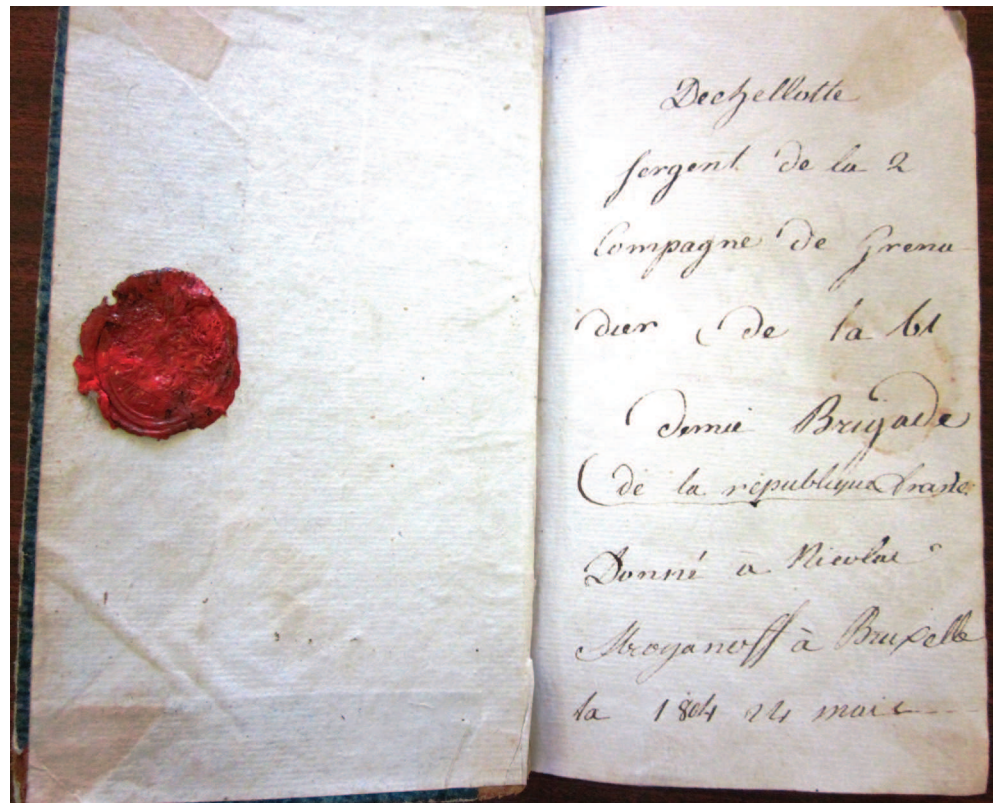 Dechellotte
sergent de la 2
Compagne de Grena
dier de la 61
demie Brigade
de la république franse
Donné a Nicolas
Stroganoff à Bruxelle
la 1804 24 mais